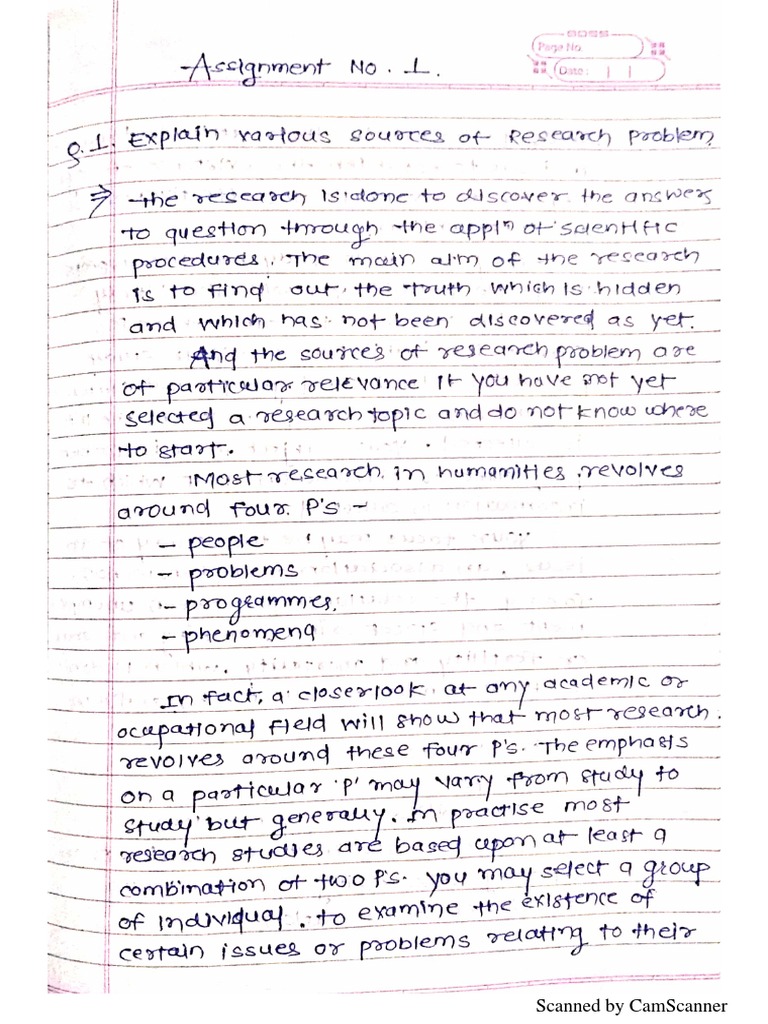 Page No.
Date: | |
Assignment No. 1.
Q.1. Explain various sources of Research problem.
⇒ The research is done to discover the answers
to question through the appln of scientific
procedures. The main aim of the research
is to find out the truth which is hidden
and which has not been discovered as yet.
And the sources of research problem are
of particular relevance if you have not yet
selected a research topic and do not know where
to start.
Most research in humanities revolves
around four P's -
- people
- problems
- programmes.
- phenomena
In fact, a closer look at any academic or
ocupational field will show that most research
revolves around these four P's. The emphasis
on a particular 'P' may vary from study to
study but generally. in practise most
research studies are based upon at least a
combination of two P's. You may select a group
of individual. to examine the existence of
certain issues or problems relating to their
Scanned by CamScanner